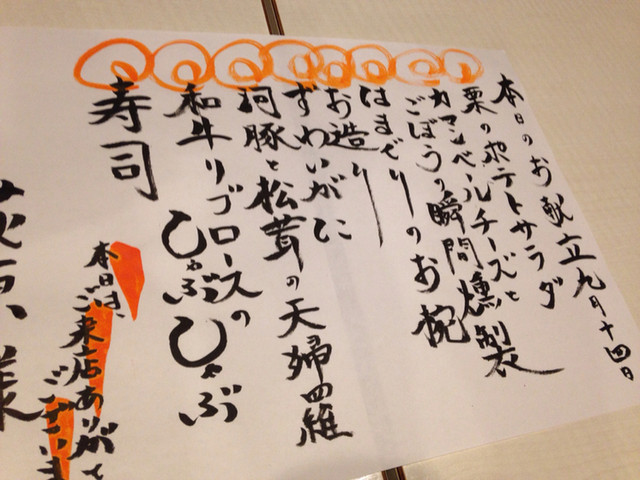 本日のお献立九月十四日
栗のポテトサラダ
カマンベールチーズと
ごぼうの瞬間燻製
はまぐりのお椀
お造り
ずわいがに
河豚と松茸の天婦羅
和牛リブロースの
しゃぶしゃぶ
寿司
本日は、
ご来店ありがと
ございま
様